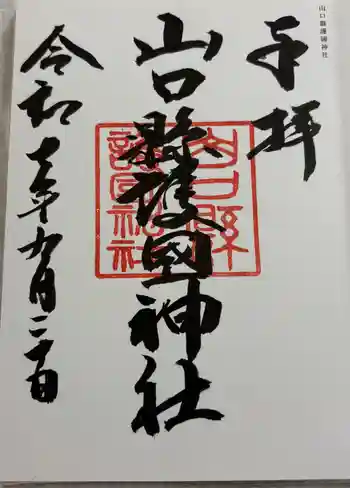 山口縣護國神社
奉拝
山口縣護國神社
山口縣護国神社
令和六年九月二十日